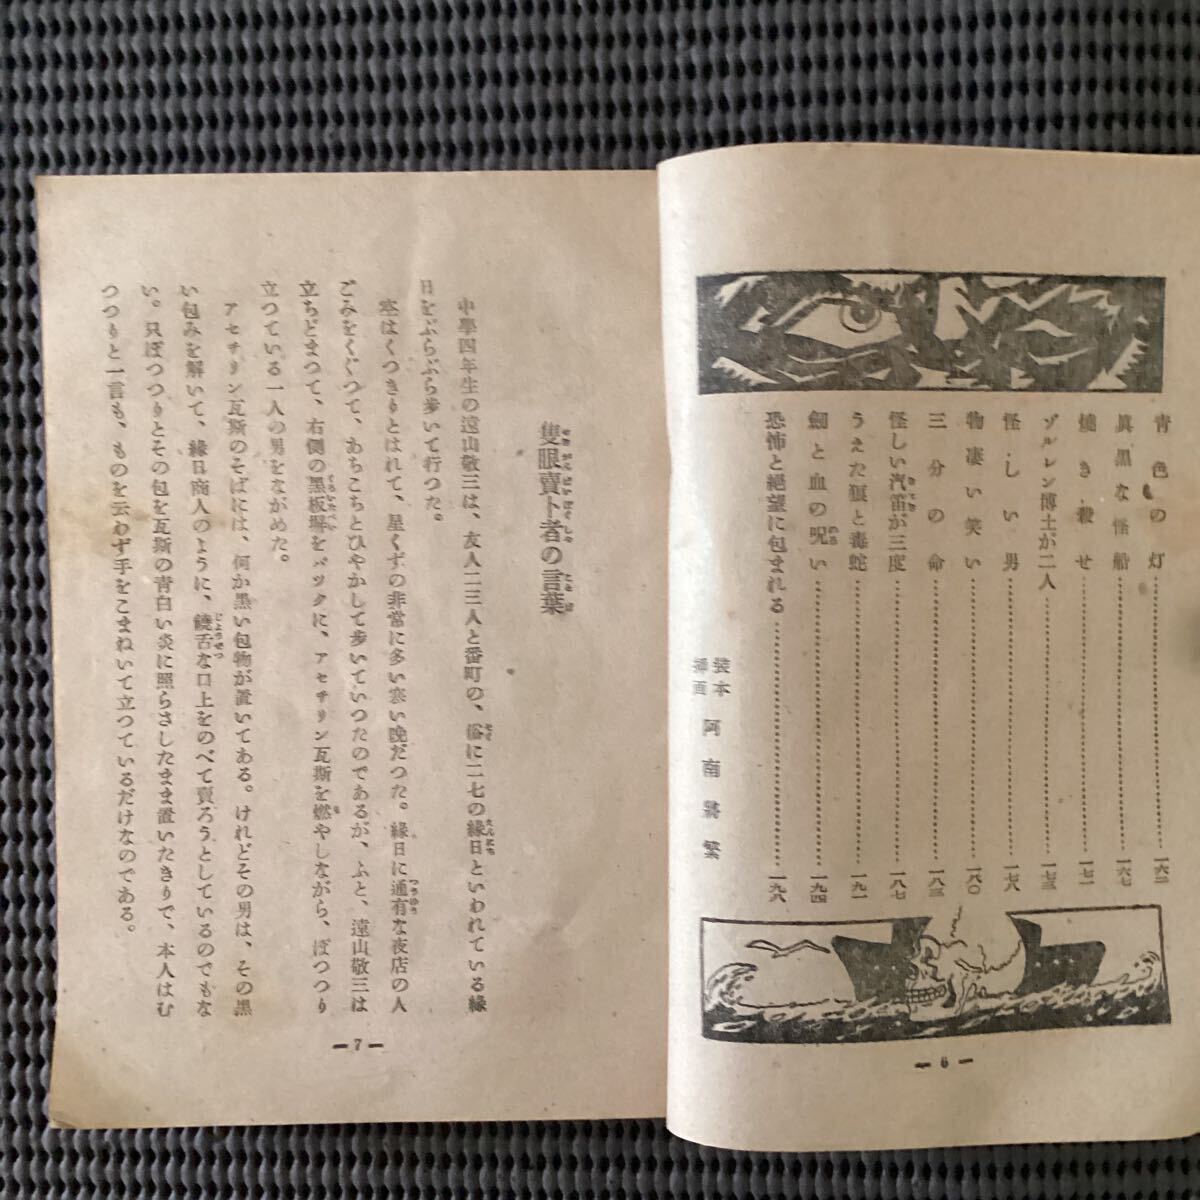 青色の灯……一六二
眞黒な怪船……一六七
燒き殺せ……一七一
ゾルレン博士が二人……一七三
怪しい男……一七八
物凄い笑い……一八〇
三分の命……一八三
怪しい汽笛が三度……一八七
うえた狼と毒蛇……一九一
劒と血の呪い……一九四
恐怖と絶望に包まれる……一九六
装本
挿画
阿南
繁
— 6 —
隻眼賣卜者の言葉
中學四年生の遠山敬三は、友人二三人と番町の、俗に二七の縁日といわれている縁
日をぶらぶら歩いて行つた。
空はくつきりとはれて、星くずの非常に多い寒い晩だつた。縁日に通有な夜店の人
ごみをくぐつて、あちこちとひやかして歩いていつたのであるが、ふと、遠山敬三は
立ちどまつて、右側の黒板塀をバックに、アセチリン瓦斯を燃やしながら、ぽつつり
立つている一人の男をながめた。
アセチリン瓦斯のそばには、何か黒い包物が置いてある。けれどその男は、その黒
い包みを解いて、縁日商人のように、饒舌な口上をのべて賣ろうとしているのでもな
い。只ぽつつりとその包を瓦斯の青白い炎に照らさしたまま置いたきりで、本人はむ
つつりと一言も、ものを云わず手をこまねいて立つているだけなのである。
— 7 —